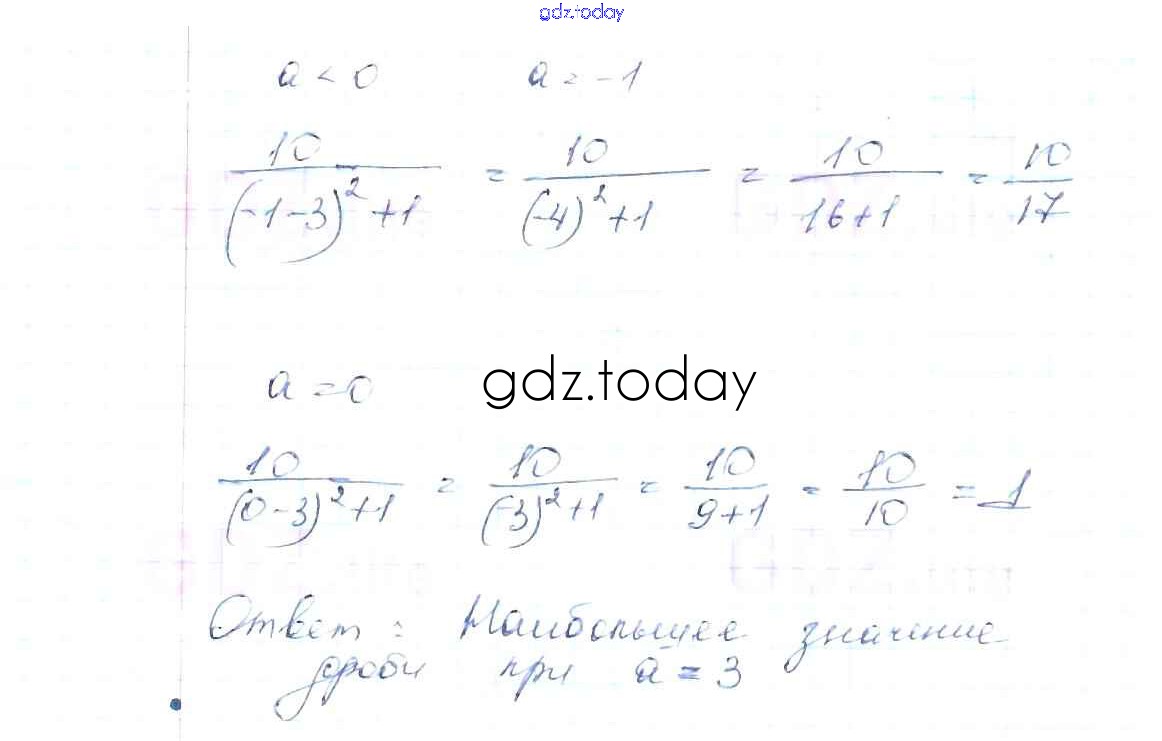 gdz.today
a < 0 a = -1
10/((-1-3)²+1) = 10/((-4)²+1) = 10/(16+1) = 10/17
a = 0 gdz.today
10/((0-3)²+1) = 10/((-3)²+1) = 10/(9+1) = 10/10 = 1
Ответ: Наибольшее значение
дроби при a = 3